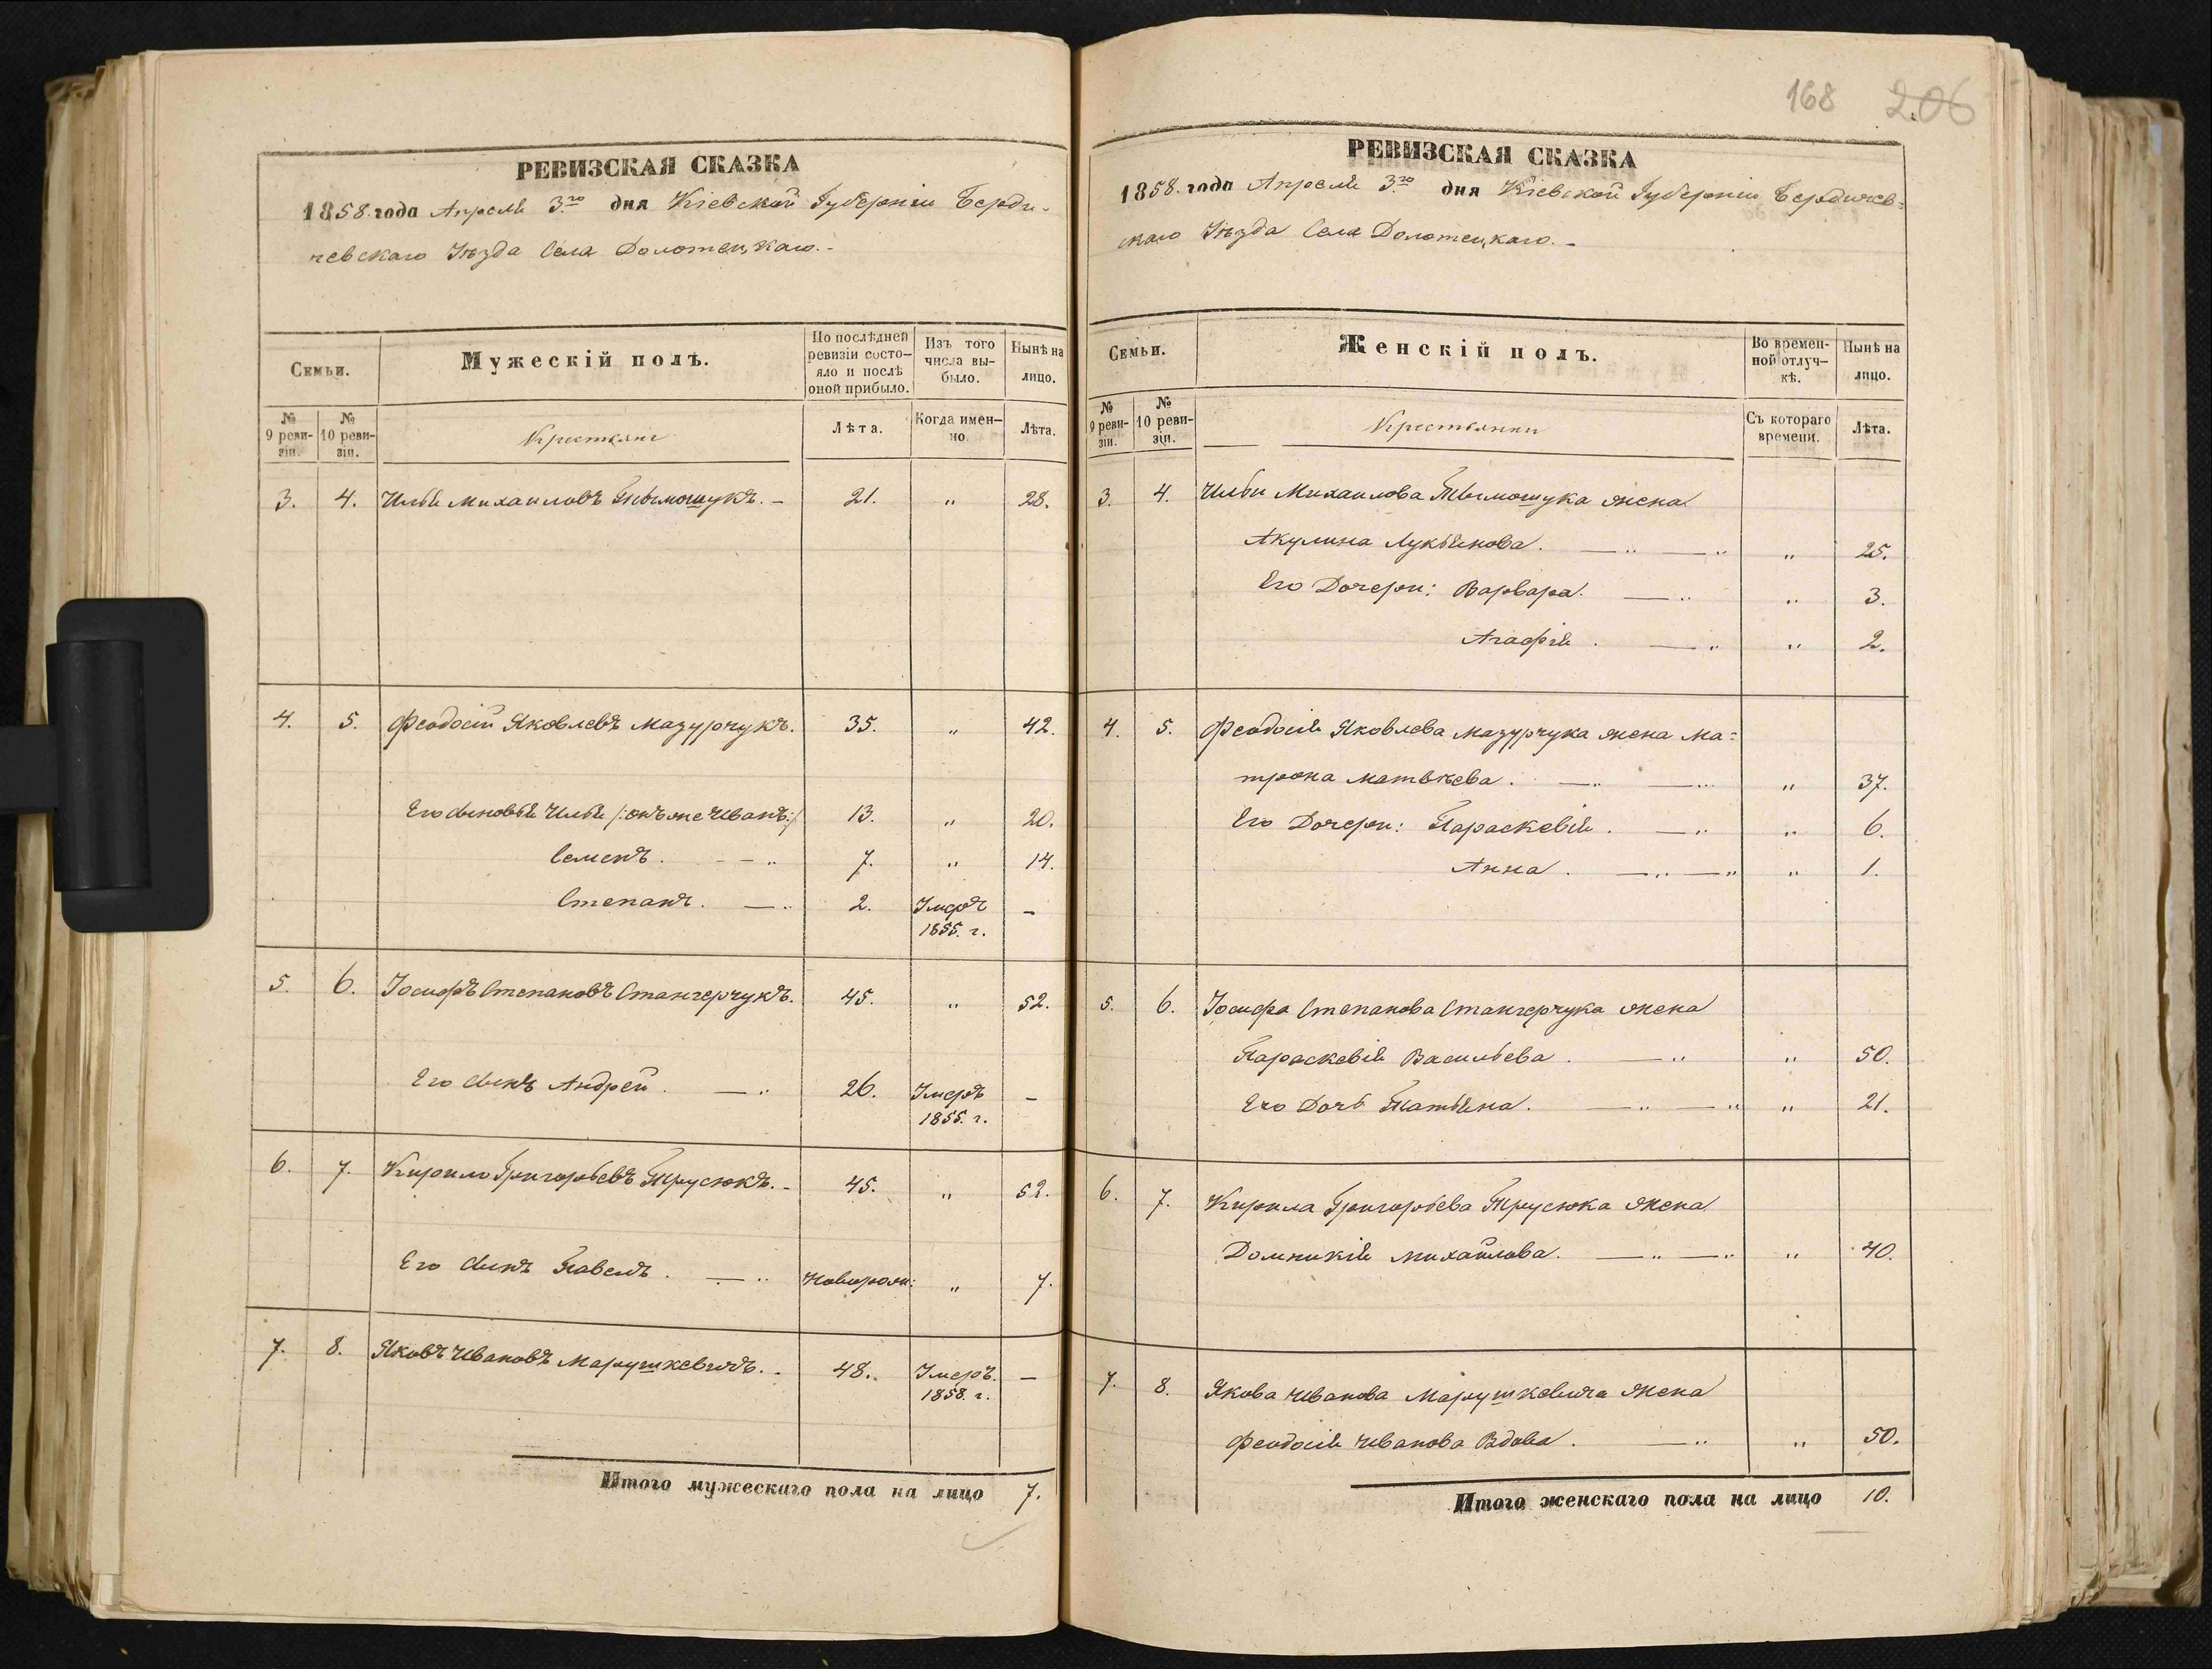 РЕВИЗСКАЯ СКАЗКА
1858. года Апреля 3го дня Кіевской Губерніи Берди-
чевскаго Уѣзда Села Долотецкаго.-
Семьи.
Мужескій полъ.
По послѣдней ревизіи состо-яло и послѣ оной прибыло.
Изъ того числа вы-было.
Нынѣ на лицо.
№ 9 реви-зіи.
№ 10 реви-зіи.
Крестьяне
Лѣта.
Когда имен-но.
Лѣта.
3. 4. Илья Михайловъ Тымошукъ. - 21. " 28.
4. 5. Феодосій Яковлевъ Мазурчукъ. 35. " 42.
Его сыновья Илья /:онъ же Иванъ:/ 13. " 20.
Семенъ. - " 7. " 14.
Степанъ. - " 2. Умеръ -
1855. г.
5. 6. Іосифъ Степановъ Стангерчукъ. 45. " 52.
Его сынъ Андрей. - " 26. Умеръ -
1855. г.
6. 7. Кирило Григорьевъ Трусюкъ. - 45. " 52.
Его сынъ Павелъ. - " Новорож: " 7.
7. 8. Яковъ Ивановъ Марушкевичъ. - 48. Умеръ. -
1858. г.
Итого мужескаго пола на лицо 7.
168 206
РЕВИЗСКАЯ СКАЗКА
1858. года Апреля 3го дня Кіевской Губерніи Бердичев=
скаго Уѣзда Села Долотецкаго. -
Семьи.
Женскій полъ.
Во времен-ной отлуч-кѣ.
Нынѣ на лицо.
№ 9 реви-зіи.
№ 10 реви-зіи.
Крестьянки
Съ котораго времени.
Лѣта.
3. 4. Ильи Михайлова Тымошука жена
Акулина Лукьянова. - " - " " 25.
Его Дочери: Варвара. - " " 3.
Агафія. - " " 2.
4. 5. Феодосія Яковлева Мазурчука жена Ма=
трона Матвѣева. - " - " " 37.
Его Дочери: Параскевія. - " " 6.
Анна. - " - " " 1.
5. 6. Іосифа Степанова Стангерчука жена
Параскевія Васильева. - " " 50.
Его Дочь Татьяна. - " - " " 21.
6. 7. Кирила Григорьева Трусюка жена
Домникія Михайлова. - " - " " 40.
7. 8. Якова Иванова Марушкевича жена
Феодосія Иванова Вдова. - " " 50.
Итого женскаго пола на лицо 10.